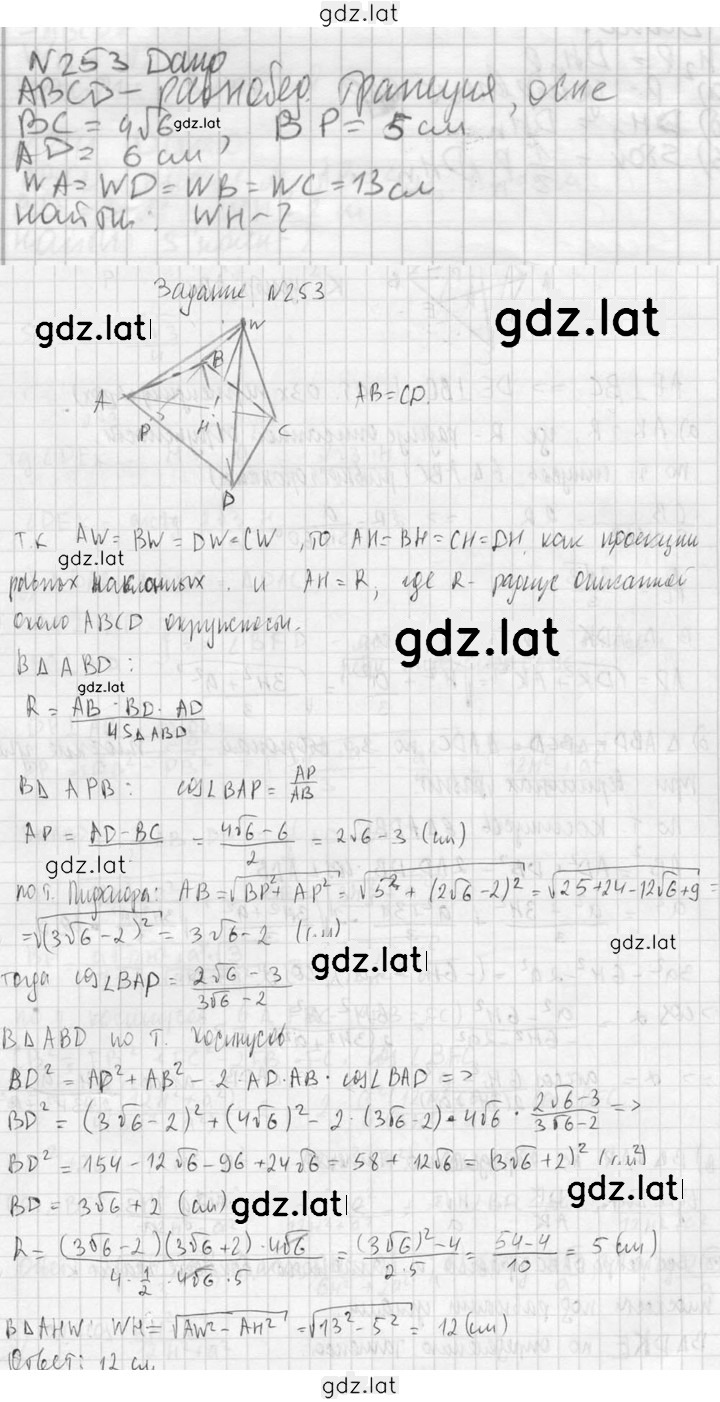 gdz.lat
N253 Дано
ABCD - равнобед. трапеция, осн
BC = 4√6 gdz.lat, BP = 5 см
AD = 6 см,
WA = WD = WB = WC = 13 см
найти: WH - ?
Задание N253
gdz.lat
gdz.lat
W
B
A
AB = CD.
P
H
C
D
Т.К AW = BW = DW = CW, то AH = BH = CH = DH, как проекции
gdz.lat
равных наклонных. и AH = R, где R - радиус описанной
около ABCD окружности.
gdz.lat
В Δ ABD:
gdz.lat
R = AB · BD · AD / 4SΔABD
В Δ APB: cos∠BAP = AP/AB
AP = AD - BC / = 4√6 - 6 / 2 = 2√6 - 3 (см)
gdz.lat
по т. Пифагора: AB = √BP² + AP² = √5² + (2√6 - 2)² = √25 + 24 - 12√6 + 9 =
= √(3√6 - 2)² = 3√6 - 2 (см)
gdz.lat
gdz.lat
тогда cos∠BAP = 2√6 - 3 / 3√6 - 2
В Δ ABD по т. косинусов
BD² = AD² + AB² - 2 · AD · AB · cos∠BAD =>
BD² = (3√6 - 2)² + (4√6)² - 2 · (3√6 - 2) · 4√6 · 2√6 - 3 / 3√6 - 2 =>
BD² = 154 - 12√6 - 96 + 24√6 = 58 + 12√6 = (3√6 + 2)² (см²)
BD = 3√6 + 2 (см)
gdz.lat
gdz.lat
R = (3√6 - 2)(3√6 + 2) · 4√6 / 4 · 1/2 · 4√6 · 5 = (3√6)² - 4 / 2 · 5 = 54 - 4 / 10 = 5 (см)
В Δ AHW: WH = √AW² - AH² = √13² - 5² = 12 (см)
Ответ: 12 см.
gdz.lat